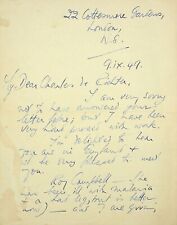 22 Cottesmore Gardens,
London,
W.8.
9.ix.49.
My Dear
I am very sorry
not to have answered your
letter before, but I have been
very much pressed with work.
I'm delighted to hear
you are in England &
it will be very pleased to meet
you.
Roy Campbell
it with malaria
has but is better
now) — and I are